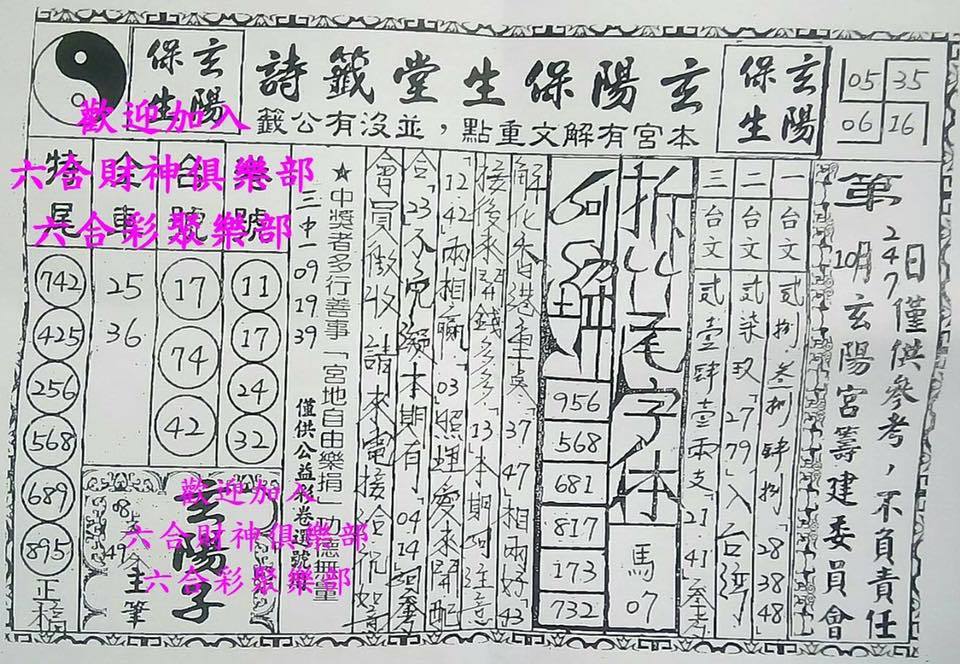 玄陽保生
玄陽保生堂籤詩
本宮有解文重點，並沒有公籤
玄陽保生
05 35
06 16
歡迎加入
六合財神俱樂部
六合彩聚樂部
第247
10月 日僅供參考，不負責任
玄陽宮籌建委員會
一 台文 弍捌．叁捌 肆捌「28 38 48
二 台文 弍柒 玖「27 79」入台灣
三 台文 弍壹肆壹兩支「21 41」
拆 尾字体
馬 07
956
568
681
817
173
732
解化香港重点「37 47」相兩好「43
接後來 錢多多「13」本期 注意
12 42」兩相贏「03」照理 來開配
合「23」不 本期有「04 14」
會員 收 請來電接合
★中獎者多行善事「宮地自由樂捐」功德無量
三中一 09 19 39
僅供公益彩卷選號
號
11
17
24
32
台號
17
74
42
全車
25
36
特尾
742
425
256
568
689
895
玄陽子
主筆
08
49
歡迎加入
六合財神俱樂部
六合彩聚樂部